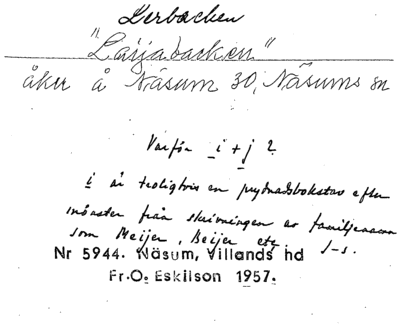 Lerbacken
"Laijabacken"
åker å Näsum 30, Näsums sn
Varför i + j ?
i är troligtvis en prydnadsbokstav efter
mönster från skrivningen av familjenamn
som Meijer, Beijer etc. J-s.
Nr 5944. Näsum, Villands hd
Fr.O. Eskilson 1957.